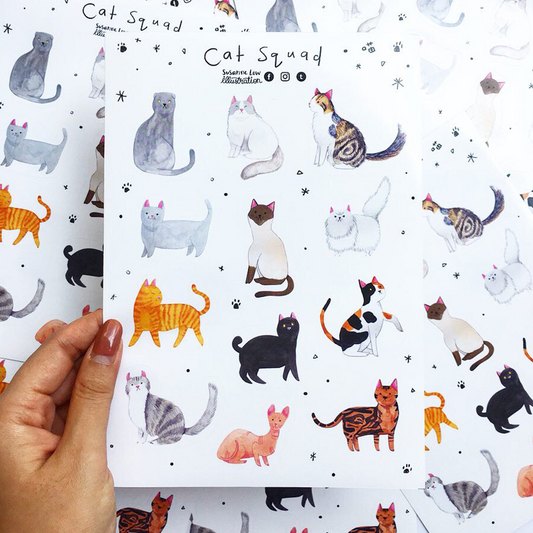 Cat Squad
Cat Squad
SUSANNE LOW
Illustration